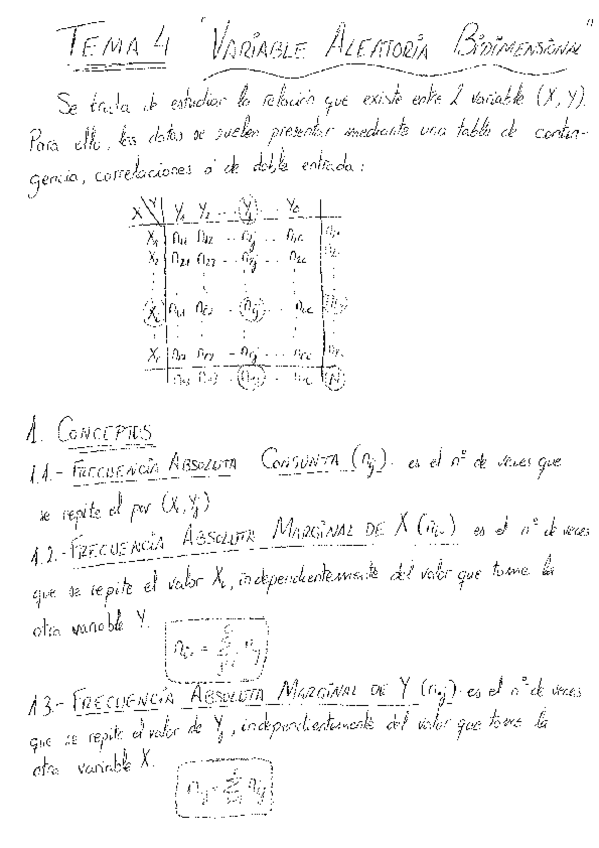 TEMA 4 "VARIABLE ALEATORIA BIDIMENSIONAL"
Se trata de estudiar la relación que existe entre 2 variable (X, Y).
Para ello, los datos se suelen presentar mediante una tabla de contin-
gencia, correlaciones o de doble entrada:
X \ Y Y₁ Y₂ ... Yⱼ ... Yc
X₁ n₁₁ n₁₂ ... n₁ⱼ ... n₁c n₁.
X₂ n₂₁ n₂₂ ... n₂ⱼ ... n₂c n₂.
Xᵢ nᵢ₁ nᵢ₂ ... nᵢⱼ ... nᵢc nᵢ.
Xr nr₁ nr₂ ... nrⱼ ... nrc nr.
n.₁ n.₂ ... n.ⱼ ... n.c N
1. CONCEPTOS
1.1.- FRECUENCIA ABSOLUTA CONJUNTA (nᵢⱼ). es el nº de veces que
se repite el par (Xᵢ, Yⱼ)
1.2.- FRECUENCIA ABSOLUTA MARGINAL DE X (nᵢ.) es el nº de veces
que se repite el valor Xᵢ, independientemente del valor que tome la
otra variable Y.
nᵢ. = Σ nᵢⱼ
1.3.- FRECUENCIA ABSOLUTA MARGINAL DE Y (n.ⱼ). es el nº de veces
que se repite el valor de Yⱼ, independientemente del valor que tome la
otra variable X.
n.ⱼ = Σ nᵢⱼ